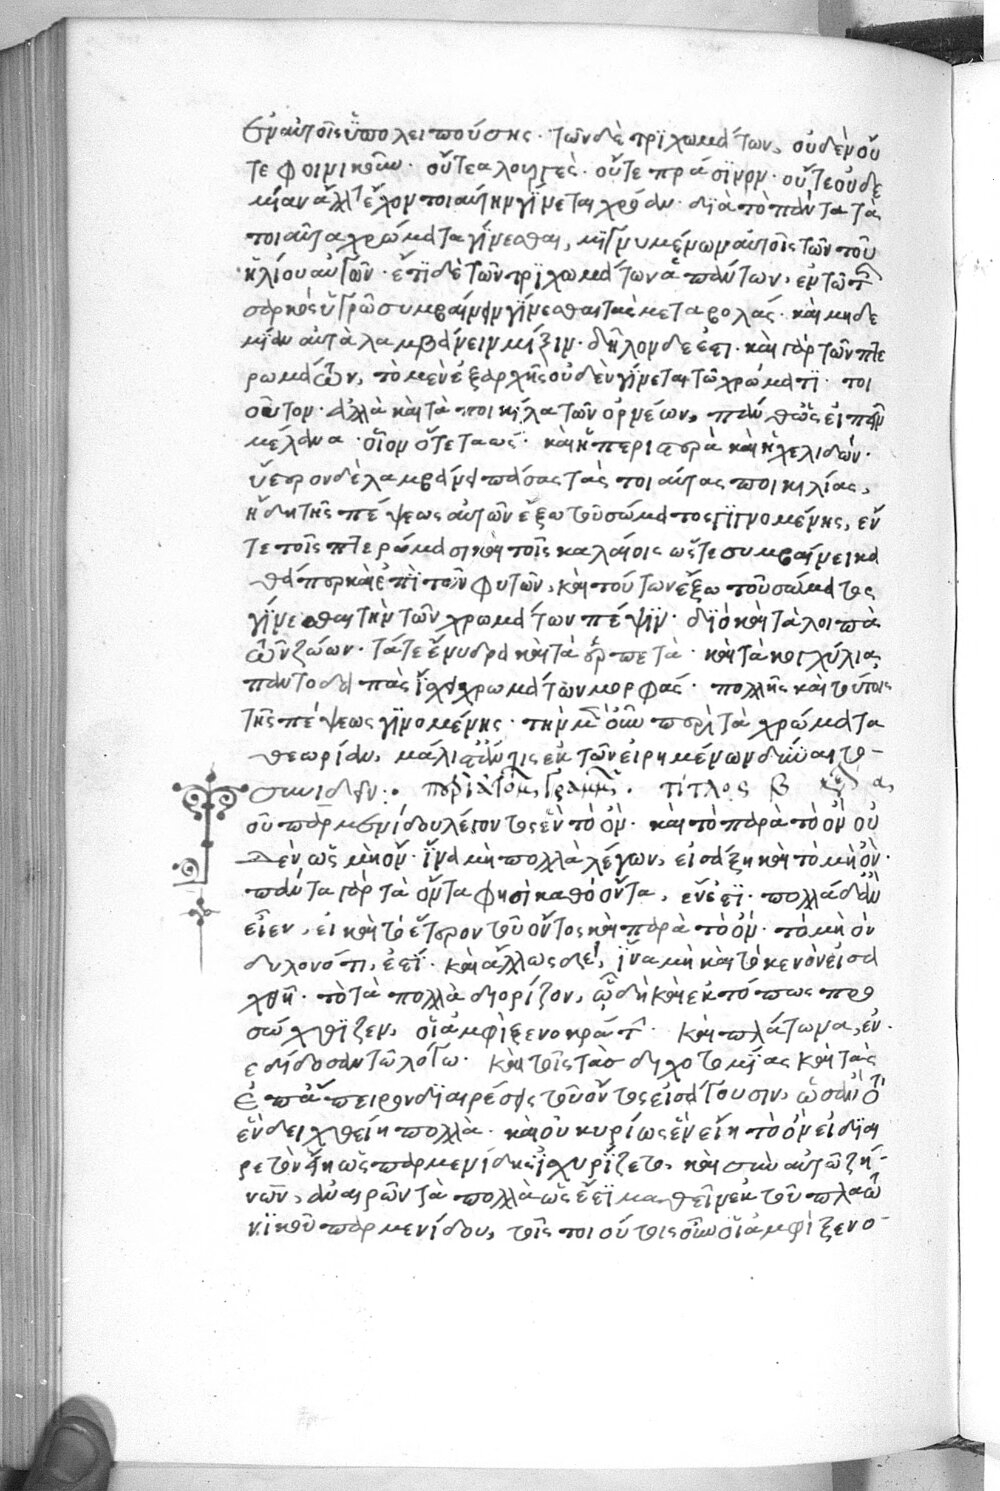 ἐν αὐτοῖς ὑπολειπούσης · τῶν δὲ τριχωμάτων, οὐδὲν οὔ
τε φοινικοῦν · οὔτε ἁλουργὲς · οὔτε πράσινον · οὔτε οὐδε
μίαν ἄλλην ἔχον τοιαύτην γίνεται χρόαν · διὰ τὸ πάντα τὰ
τοιαῦτα χρώματα γίνεσθαι, μιγνυμένων αὐτοῖς τῶν τοῦ
ἡλίου αὐγῶν · ἔτι δὲ τῶν τριχωμάτων ἁπάντων, ἐντὸς τῆς
σαρκὸς ὑγρῶν συμβαίνειν γίνεσθαι τὰς μεταβολάς · καὶ μηδε
μίαν αὐτὰ λαμβάνειν μίξιν · δῆλον δέ ἐστι · καὶ γὰρ τῶν πτε
ρωμάτων, τὸ μὲν ἐξ ἀρχῆς οὐδὲν γίνεται τῷ χρώματι · τοι
οῦτον · ἀλλὰ καὶ τὰ ποικίλα τῶν ὀρνέων, πάνθ' ὡς εἰπεῖν
μέλανα · οἷον ὅ τε ταὼς · καὶ ἡ περιστερὰ καὶ ἡ χελιδών ·
ὕστερον δὲ λαμβάνει πάσας τὰς τοιαύτας ποικιλίας,
ἤδη τῆς πέψεως αὐτῶν ἔξω τοῦ σώματος γιγνομένης, ἔν
τε τοῖς πτερώμασι καὶ τοῖς καλαίοις ὥστε συμβαίνει κα
θάπερ καὶ ἐπὶ τῶν φυτῶν, καὶ τούτων ἔξω τοῦ σώματος
γίνεσθαι τὴν τῶν χρωμάτων πέψιν · διὸ καὶ τὰ λοιπὰ
τῶν ζώων · τά τε ἔνυδρα καὶ τὰ ἑρπετὰ · καὶ τὰ κογχύλια,
παντοδαπὰς ἴσχει χρωμάτων μορφάς · πολλῆς καὶ τούτοις
τῆς πέψεως γινομένης · τὴν μὲν οὖν περὶ τὰ χρώματα
θεωρίαν, μάλιστ' ἄν τις ἐκ τῶν εἰρημένων δύναιτο
συνιδεῖν :· περὶ ἀτόμων γραμμῶν · τίτλος β
οὐ παρμενίδου λέγοντος ἓν τὸ ὄν · καὶ τὸ παρὰ τὸ ὂν οὐ
δὲν ὡς μὴ ὄν · ἵνα μὴ πολλὰ λέγων, εἰσάξῃ καὶ τὸ μὴ ὄν ·
πάντα γὰρ τὰ ὄντα φησὶ καθὸ ὄντα, ἕν ἐστι · πολλὰ δ' ἂν
εἶεν, εἰ καὶ τὸ ἕτερον τοῦ ὄντος καὶ παρὰ τὸ ὄν · τὸ μὴ ὂν
δηλονότι, ἐστί · καὶ ἄλλως δὲ, ἵνα μὴ καὶ τὸ κενὸν εἰσα
χθῇ · τὸ τὰ πολλὰ διορίζον, ᾧ δὴ καὶ ἐκτόπως προ
σώχθιζεν, οἱ ἀμφὶ ξενοκράτην · καὶ πλάτωνα, ἐν
εδίδοσαν τῷ λόγῳ · καὶ τοῖς τὰς διχοτομίας καὶ τὰς
ἐπ' ἄπειρον διαιρέσεις τοῦ ὄντος εἰσάγουσιν, ὡσανεὶ
ἓν δειχθείη πολλὰ · καὶ οὐ κυρίως ἓν εἴη τὸ ὂν εἰ διαι
ρετὸν εἴη ὡς παρμενίδης ἰσχυρίζετο, καὶ σὺν αὐτῷ ζή
νων, ἀναιρῶν τὰ πολλὰ ὡς ἔστι μαθεῖν ἐκ τοῦ πλατω
νικοῦ παρμενίδου, τοῖς τοιούτοις οὖν οἱ ἀμφὶ ξενο-